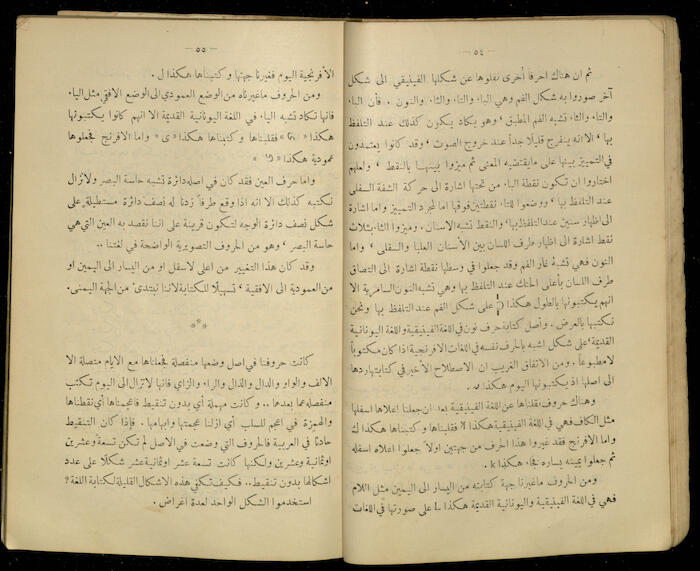 — ٥٤ —
ثم ان هناك احرفا أخرى نقلوها عن شكلها الفينيقي الى شكل
آخر صوروا به شكل الفم وهي الباء والتاء والثاء والنون . فأن الباء
والتاء والثاء تشبه الفم المطبق ، وهو يكاد يكون كذلك عند التلفظ
بها ، الا انه ينفرج قليلاً جداً عند خروج الصوت ، وقد كانوا يعتمدون
في التمييز بينها على ما يقتضيه المعنى ثم ميزوا بينهما بالنقط ، ولعلهم
اختاروا ان تكون نقطة الباء من تحتها اشارة الى حركة الشفة السفلى
عند التلفظ بها ، ووضعوا للتاء نقطتين فوقها اما لمجرد التمييز واما اشارة
الى اظهار سنين عند التلفظ بها ، والنقط تشبه الاسنان . وميزوا الثاء بثلاث
نقط اشارة الى اظهار طرف اللسان بين الأسنان العليا والسفلى ، واما
النون فهي تشبه غار الفم وقد جعلوا في وسطها نقطة اشارة الى التصاق
طرف اللسان بأعلى الحنك عند التلفظ بها وهي تشبه النون السامرية الا
انهم يكتبونها بالطول هكذا على شكل الفم عند التلفظ بها ونحن
نكتبها بالعرض . وأصل كتابة حرف نون في اللغة الفينيقية واللغة اليونانية
القديمة على شكل اشبه بالحرف نفسه في اللغات الافرنجية اذا كان مكتوباً
لا مطبوعاً . ومن الاتفاق الغريب ان الاصطلاح الأخير في كتابتها ردها
الى اصلها اذ يكتبونها اليوم هكذا
وهناك حروف نقلناها عن اللغة الفينيقية بعد ان جعلنا اعلاها اسفلها
مثل الكاف فهي في اللغة الفينيقية هكذا فقلبناها وكتبناها هكذا ك
واما الافرنج فقد غيروا هذا الحرف من جهتين اولاً جعلوا اعلاه اسفله
ثم جعلوا يمينه يساره فجاء هكذا k .
ومن الحروف ما غيرنا جهة كتابته من اليسار الى اليمين مثل اللام
فهي في اللغة الفينيقية واليونانية القديمة هكذا L على صورتها في اللغات
— ٥٥ —
الأفرنجية اليوم فغيرنا جهتها وكتبناها هكذا ل .
ومن الحروف ما غيرناه من الوضع العمودي الى الوضع الافقي مثل الياء
فانها تكاد تشبه الياء في اللغة اليونانية القديمة الا انهم كانوا يكتبونها
هكذا فقلبناها وكتبناها هكذا « ى » واما الافرنج فجعلوها
عمودية هكذا
واما حرف العين فقد كان في اصله دائرة تشبه حاسة البصر ولا نزال
نكتبه كذلك الا انه اذا وقع طرفاً زدنا له نصف دائرة مستطيلة على
شكل نصف دائرة الوجه لتكون قرينة على اننا نقصد به العين التي هي
حاسة البصر ، وهو من الحروف التصويرية الواضحة في لغتنا ..
وقد كان هذا التغيير من اعلى لاسفل او من اليسار الى اليمين او
من العمودية الى الافقية ، تسهيلاً للكتابة لاننا نبتدئ من الجهة اليمنى .
* * *
كانت حروفنا في اصل وضعها منفصلة فجعلناها مع الايام متصلة الا
الالف والواو والدال والذال والراء والزاي فانها لا تزال الى اليوم تكتب
منفصلة عما بعدها .. وكانت مهملة أي بدون تنقيط فاعجمناها أي نقطناها
والهمزة في اعجم للسلب أي ازلنا عجمتها وابهامها . فإذا كان التنقيط
حادثاً في العربية فالحروف التي وضعت في الاصل لم تكن تسعة وعشرين
او ثمانية وعشرين ولكنها كانت تسعة عشر او ثمانية عشر شكلاً على عدد
اشكالها بدون تنقيط .. فكيف تكفي هذه الاشكال القليلة لكتابة اللغة ؟
استخدموا الشكل الواحد لعدة اغراض .